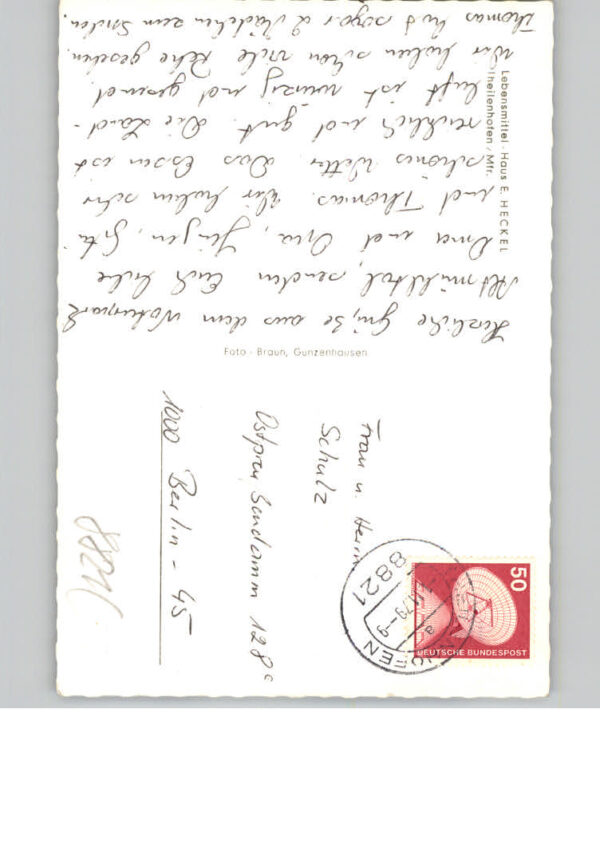 Herzliche Grüße aus dem Naturpark
Altmühltal, senden Euch liebe
Oma und Opa, Jürgen,
und Thomas. Wir haben sehr
schönes Wetter. Das Essen ist
reichlich und gut. Die Land-
luft ist würzig und gesund.
Wir haben schon viele Rehe gesehen.
Thomas hat sogar 2 Mädchen zum
Lebensmittel-Haus E. HECKEL
Theilenhofen/Mfr.
Foto - Braun, Gunzenhausen
Frau u. Herrn
Schulz
Ostpreußendamm 128c
1000 Berlin - 45
8821
50
DEUTSCHE BUNDESPOST
8821